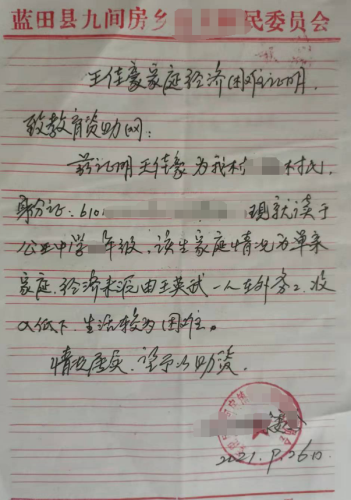 蓝田县九间房乡 民委员会
王佳豪家庭经济困难证明
致教育资助网：
兹证明王佳豪为我村 村民，
身份证：610 现就读于
公王中学 年级，该生家庭情况为单亲
家庭，经济来源由王英武一人在外务工，收
入低下，生活较为困难。
情况属实，望予以助资。
2021.9.26日